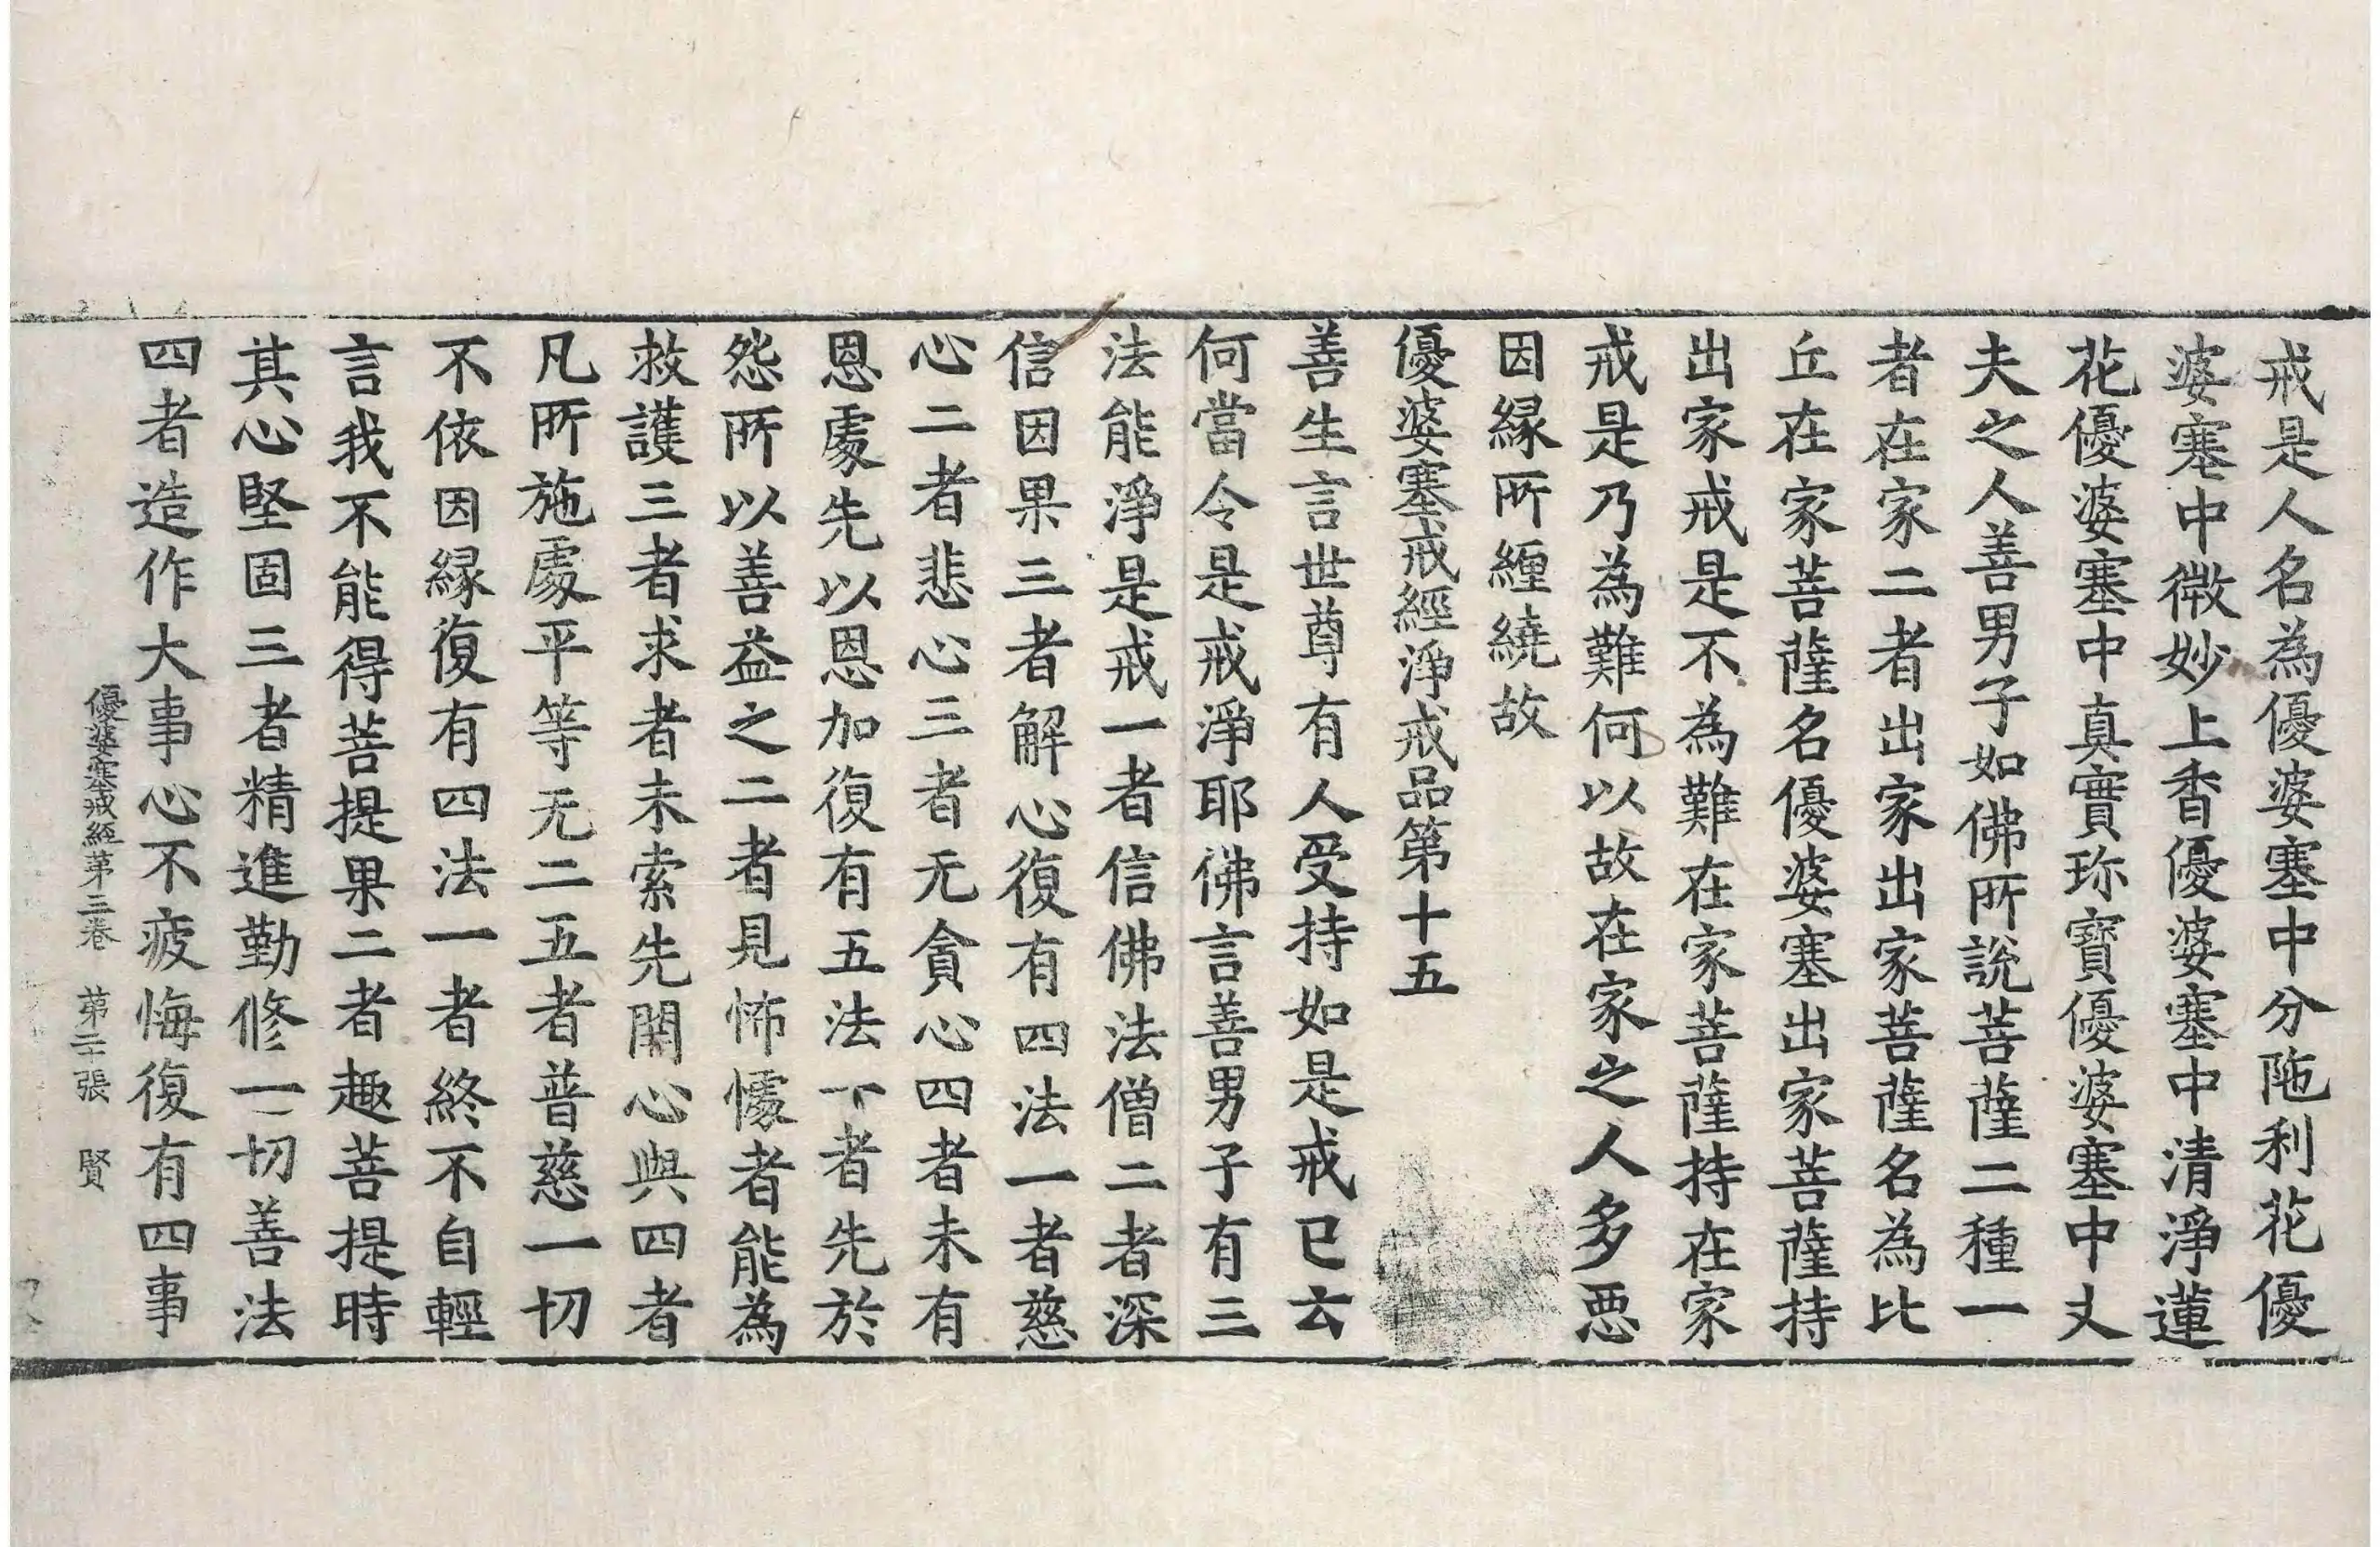 戒是人名為優婆塞中分陁利花優
婆塞中微妙上香優婆塞中清淨蓮
花優婆塞中真實珎寶優婆塞中丈
夫之人善男子如佛所說菩薩二種一
者在家二者出家出家菩薩名為比
丘在家菩薩名優婆塞出家菩薩持
出家戒是不為難在家菩薩持在家
戒是乃為難何以故在家之人多惡
因緣所纏繞故
優婆塞戒經淨戒品第十五
善生言世尊有人受持如是戒已云
何當令是戒淨耶佛言善男子有三
法能淨是戒一者信佛法僧二者深
信因果三者解心復有四法一者慈
心二者悲心三者无貪心四者未有
恩處先以恩加復有五法一者先於
怨所以善益之二者見怖懅者能為
救護三者求者未索先開心與四者
凡所施處平等无二五者普慈一切
不依因緣復有四法一者終不自輕
言我不能得菩提果二者趣菩提時
其心堅固三者精進勤修一切善法
四者造作大事心不疲悔復有四事
優婆塞戒經第三卷 第二十張 賢